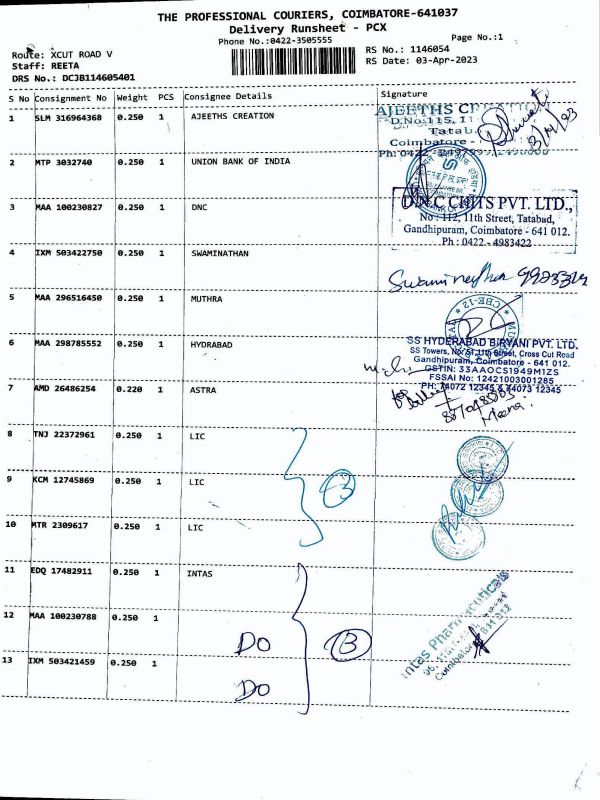 THE PROFESSIONAL COURIERS, COIMBATORE-641037
Delivery Runsheet - PCX
Phone No.:0422-3505555
Page No.:1
Route: XCUT ROAD V
RS No.: 1146054
Staff: REETA
RS Date: 03-Apr-2023
DRS No.: DCJB114605401
S No Consignment No Weight PCS Consignee Details Signature
1 SLM 316964368 0.250 1 AJEETHS CREATION
AJEETHS
D.No:115, 11
Tatab
Coimbatore -
Ph: 0422
3/4/23
2 MTP 3032740 0.250 1 UNION BANK OF INDIA
3 MAA 100230827 0.250 1 DNC
D.N.C CHITS PVT. LTD.,
No : 112, 11th Street, Tatabad,
Gandhipuram, Coimbatore - 641 012.
Ph : 0422 - 4983422
4 IXM 503422750 0.250 1 SWAMINATHAN
Swaminathan
5 MAA 296516450 0.250 1 MUTHRA
CBE-12
6 MAA 298785552 0.250 1 HYDRABAD
SS HYDERABAD BIRYANI PVT. LTD.
SS Towers, No: 51, 11th Street, Cross Cut Road
Gandhipuram, Coimbatore - 641 012.
GSTIN: 33AAOCS1949M1ZS
FSSAI No: 12421003001285
PH: 74072 12345 & 74073 12345
7 AMD 26486254 0.220 1 ASTRA
Meena
8 TNJ 22372961 0.250 1 LIC
9 KCM 12745869 0.250 1 LIC
3
10 MTR 2309617 0.250 1 LIC
11 EDQ 17482911 0.250 1 INTAS
Intas Pharmaceuticals
Coimbatore
12 MAA 100230788 0.250 1
DO
13 IXM 503421459 0.250 1
DO